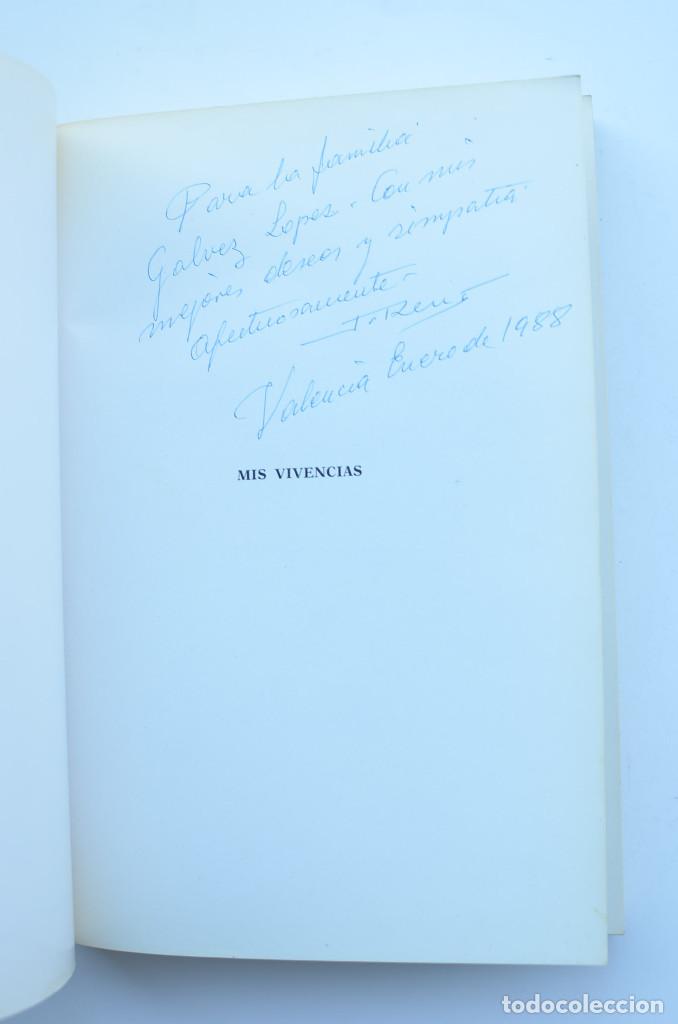 Para la familia
Galvez Lopez - Con mis
mejores deseos y simpatia -
Afectuosamente -
Valencia Enero de 1988
MIS VIVENCIAS
todocoleccion